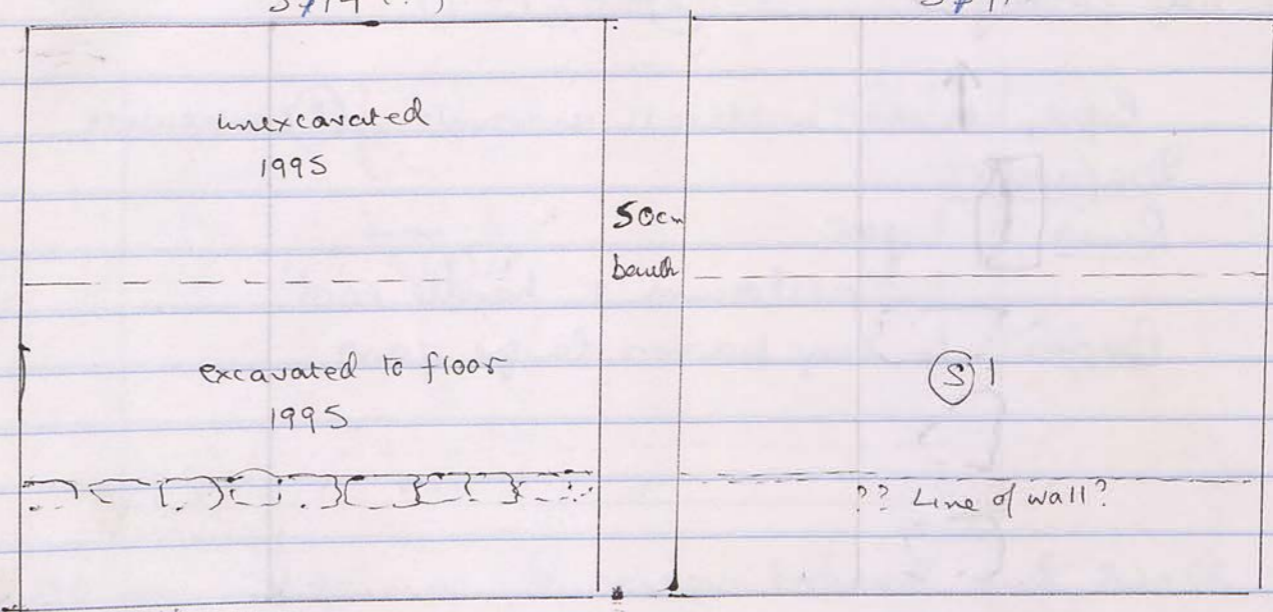 unexcavated
1995
50cm
excavated to floor
1995
S 1
?? Line of wall?